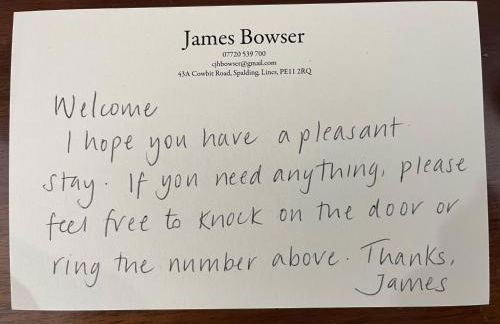 James Bowser
07720 539 700
cjhbowser@gmail.com
43A Cowbit Road, Spalding, Lincs, PE11 2RQ
Welcome
I hope you have a pleasant
stay. If you need anything, please
feel free to knock on the door or
ring the number above. Thanks,
James